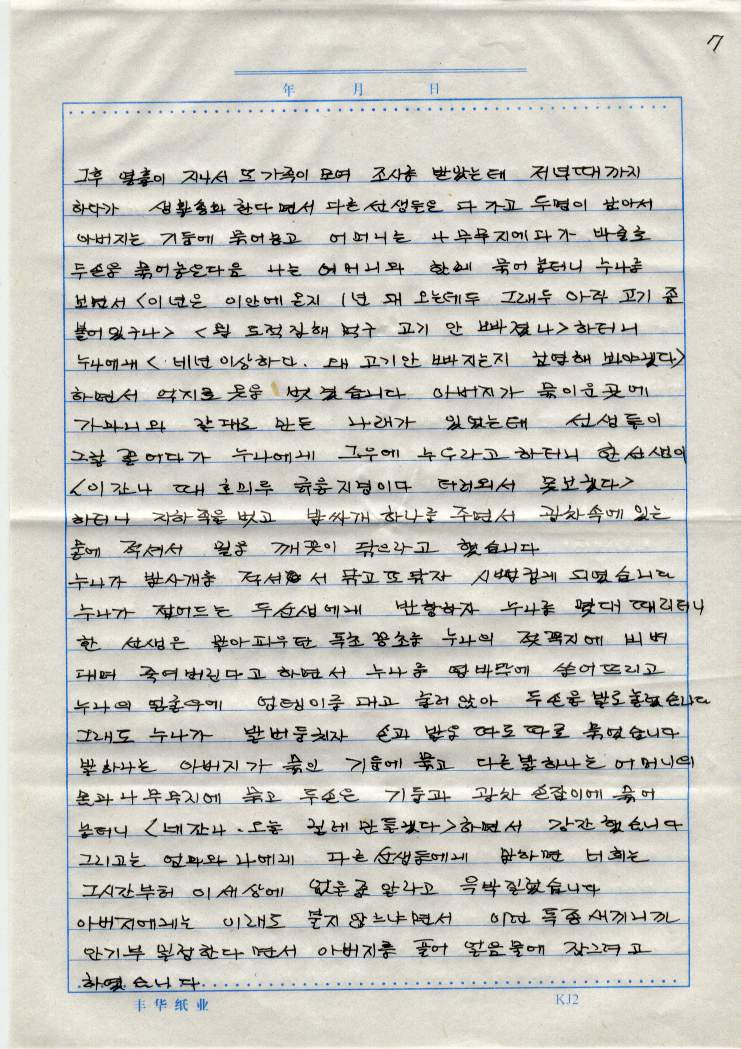 7
年 月 日
그후 열흘이 지나서 또 가족이 모여 조사를 받았는데 저녁때까지
하다가 생활총화 한다면서 다른 선생들은 다 가고 두명이 남아서
아버지는 기둥에 묶어놓고 어머니는 나무무지에다가 바줄로
두손을 묶어놓은다음 나는 어머니와 함께 묶어 놓터니 누나를
보면서 <이년은 이안에 온지 1년 돼 오는데두 그래두 아직 고기 좀
붙어있구나> < 도적질해 먹구 고기 안 빠졌나>하더니
누나에게 <네년 이상하다. 왜 고기안 빠지는지 점명해 봐야겠다>
하면서 억지로 옷을 벗겼습니다 아버지가 묶이운곳에
가마니와 갈대로 만든 나래가 있었는데 선생들이
그걸 끌어다가 누나에게 그우에 누우라고 하더니 한선생이
<이간나 때 호미루 긁을지경이다 더러와서 못보겠다>
하더니 자하족을 벗고 발싸개 하나를 주면서 광차속에 있는
물에 적셔서 몸을 깨끗이 닦으라고 했습니다
누나가 발사개를 적셔서 닦고 또닦자 시뻘겋게 되였습니다
누나가 접어드는 두선생에게 반항하자 누나를 몇대 때리더니
한 선생은 말아피우던 독초 꽁초를 누나의 젖꼭지에 비벼
대며 죽여버린다고 하면서 누나를 땅바닥에 쓸어뜨리고
누나의 얼굴우에 엉덩이를 대고 눌러 앉아 두손을 발로눌렀습니다
그래도 누나가 발버둥치자 손과 발을 따로 따로 묶었습니다
발하나는 아버지가 묶인 기둥에 묶고 다른발하나는 어머니의
손과 나무무지에 묶고 두손은 기둥과 광차 손잡이에 묶어
놓터니 <네간나. 오늘 걸레 만들겠다>하면서 강간했습니다
그리고는 엄마와 나에게 다른선생들에게 말하면 너희는
그시간부터 이세상에 없을줄 알라고 윽박질했습니다
아버지에게는 이래도 불지 않느냐면서 이런 독종새끼니까
안기부 일정한다면서 아버지를 풀어 얼음물에 잠그려고
하였습니다
丰华纸业 KJ2